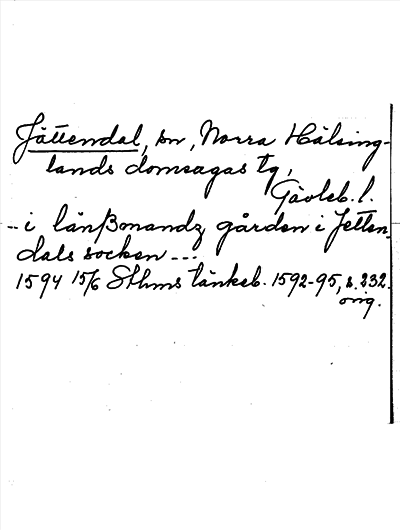 Jättendal, sn, Norra Hälsing-
lands domsagas tg,
Gävleb. l.
-- i länßmandz gården i Jetten-
dals socken ---
1594 15/6 Sthms tänkeb. 1592-95, s. 232.
orig.